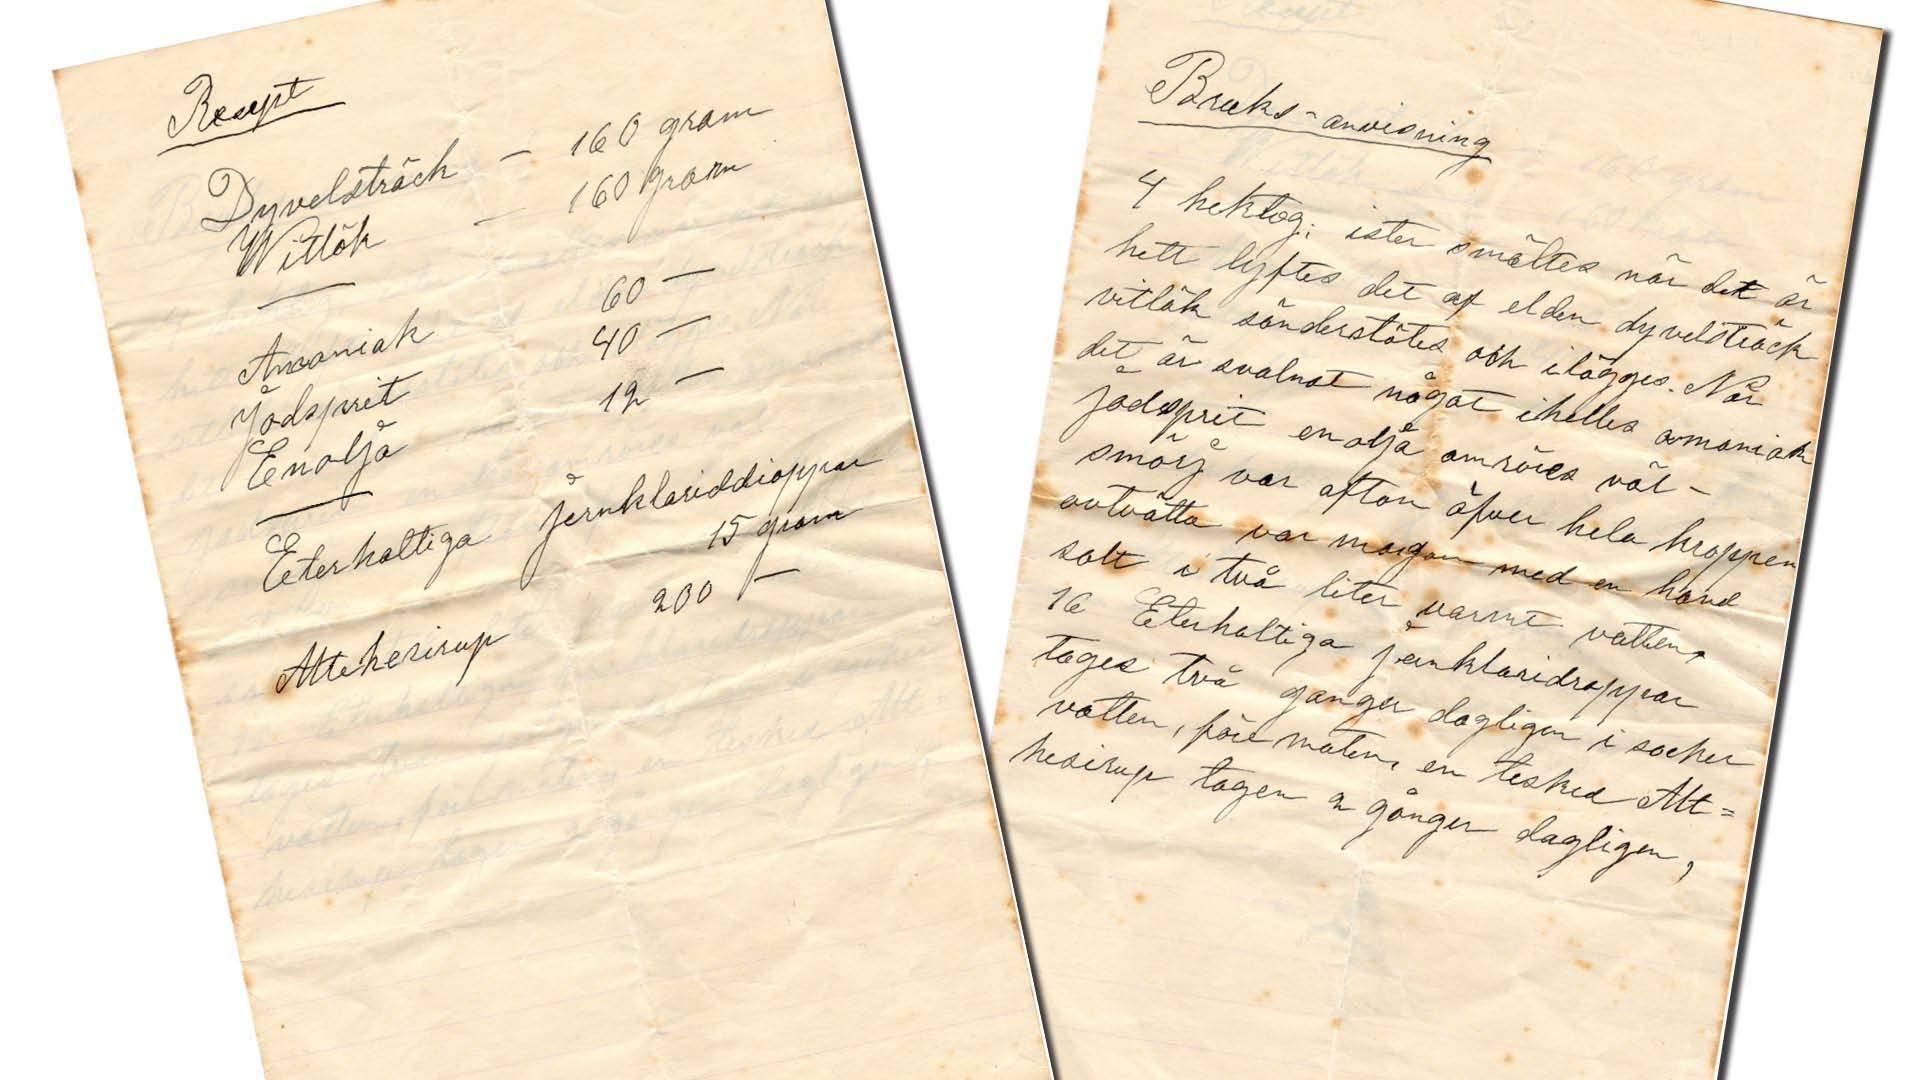 Resept
Dyvelsträck — 160 gram
Witlök — 160 gram
Amoniak 60 —
Jodsprit 40 —
Enoljå 12 —
Eterhaltiga jernkloriddroppar
15 gram
Altehesirup 200 —
Bruks-anvisning
4 hektog; ister smältes när det är
hett lyftes det af elden dyvelsträck
vitlök sönderstötes och ilägges. När
det är svalnat något ihelles amoniak
jodsprit enoljå omröres väl —
smörj var afton öfver hela kroppen
avtvätta var morgon med en hand
salt i två liter varmt vatten,
16 Eterhaltiga jernkloridroppar
tages två ganger dagligen i socker
vatten, före maten, en tesked Alt=
hesirup tagen 2 gånger dagligen,